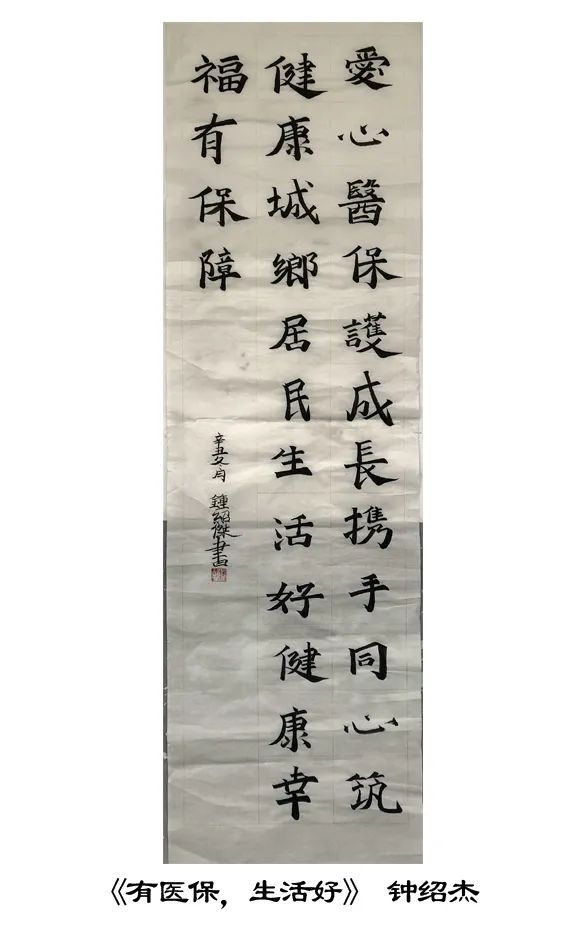 愛心醫保護成長携手同心筑
健康城鄉居民生活好健康幸
福有保障
辛丑冬月 鍾紹傑書
《有医保，生活好》 钟绍杰